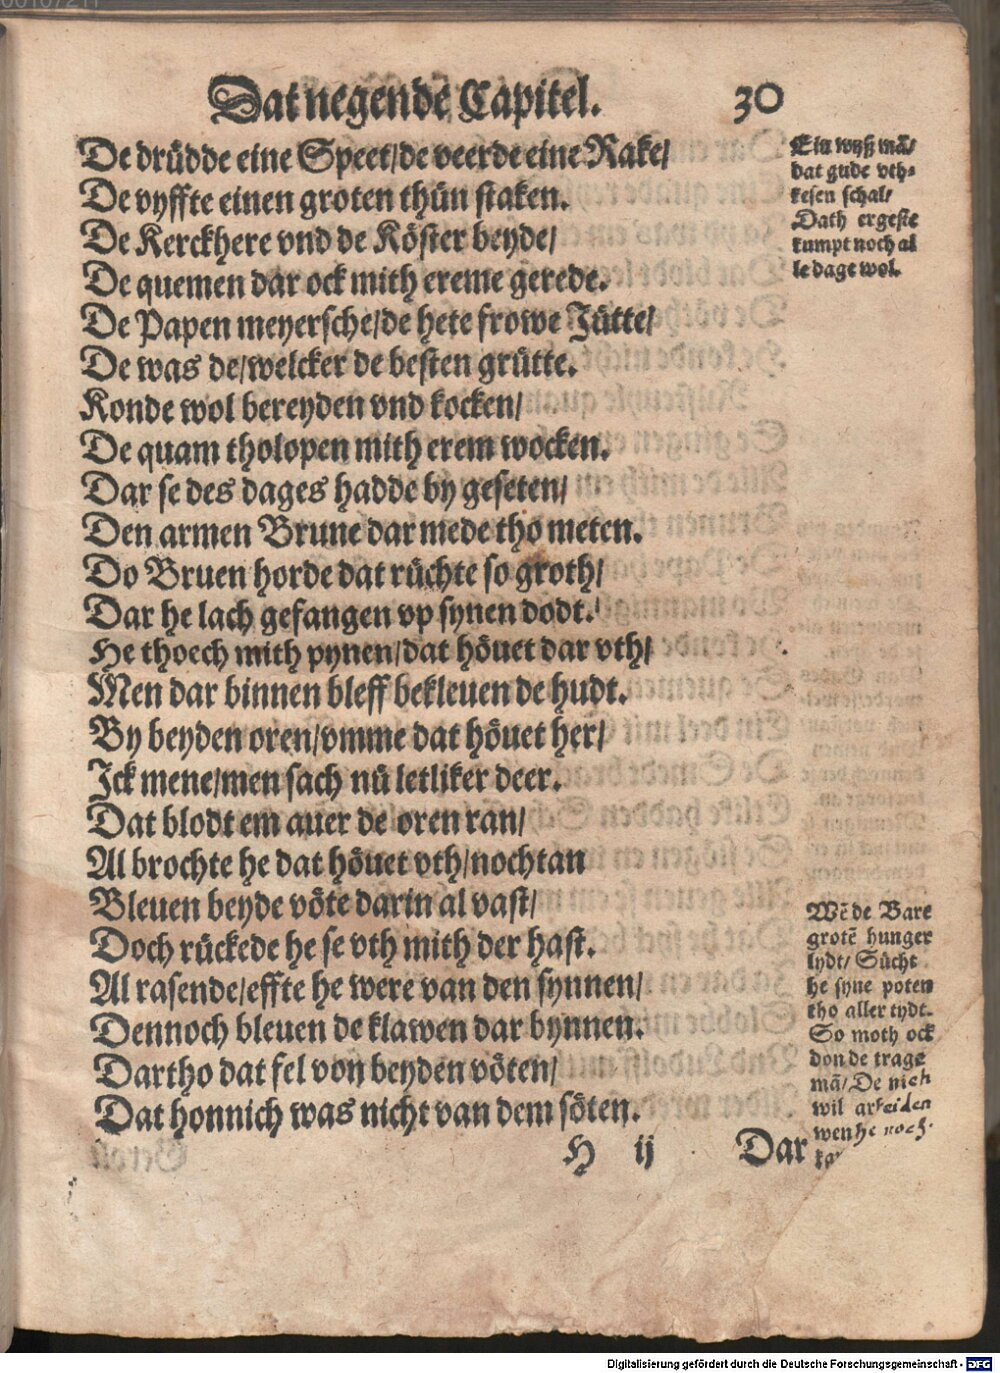 Dat negende Capitel. 30
De drüdde eine Speet/de veerde eine Rake/
De vyffte einen groten thün staken.
De Kerckhere vnd de Köster beyde/
De quemen dar ock mith ereme gerede.
De Papen meyersche/de hete frowe Jütte/
De was de/welcker de besten grütte.
Konde wol bereyden vnd kocken/
De quam tholopen mith erem wocken.
Dar se des dages hadde by geseten/
Den armen Brune dar mede tho meten.
Do Bruen horde dat rüchte so groth/
Dar he lach gefangen vp synen dodt.
He thoech mith pynen/dat höuet dar vth/
Men dar binnen bleff bekleuen de hudt.
By beyden oren/vmme dat höuet her/
Jck mene/men sach nü letliker deer.
Dat blodt em auer de oren ran/
Al brochte he dat höuet vth/nochtan
Bleuen beyde vöte darin al vast/
Doch rückede he se vth mith der hast.
Al rasende/effte he were van den synnen/
Dennoch bleuen de klawen dar bynnen.
Dartho dat fel von beyden vöten/
Dat honnich was nicht van dem söten.
H ij Dar
Ein wyß mā/
dat gude vth-
kesen schal/
Dath ergeste
kumpt noch al
le dage wol.
Wē de Bare
grotē hunger
lydt/ Sücht
he syne poten
tho aller tydt.
So moth ock
don de trage
mā/De nich
wil arbeiden
wen he noch
Digitalisierung gefördert durch die Deutsche Forschungsgemeinschaft - DFG